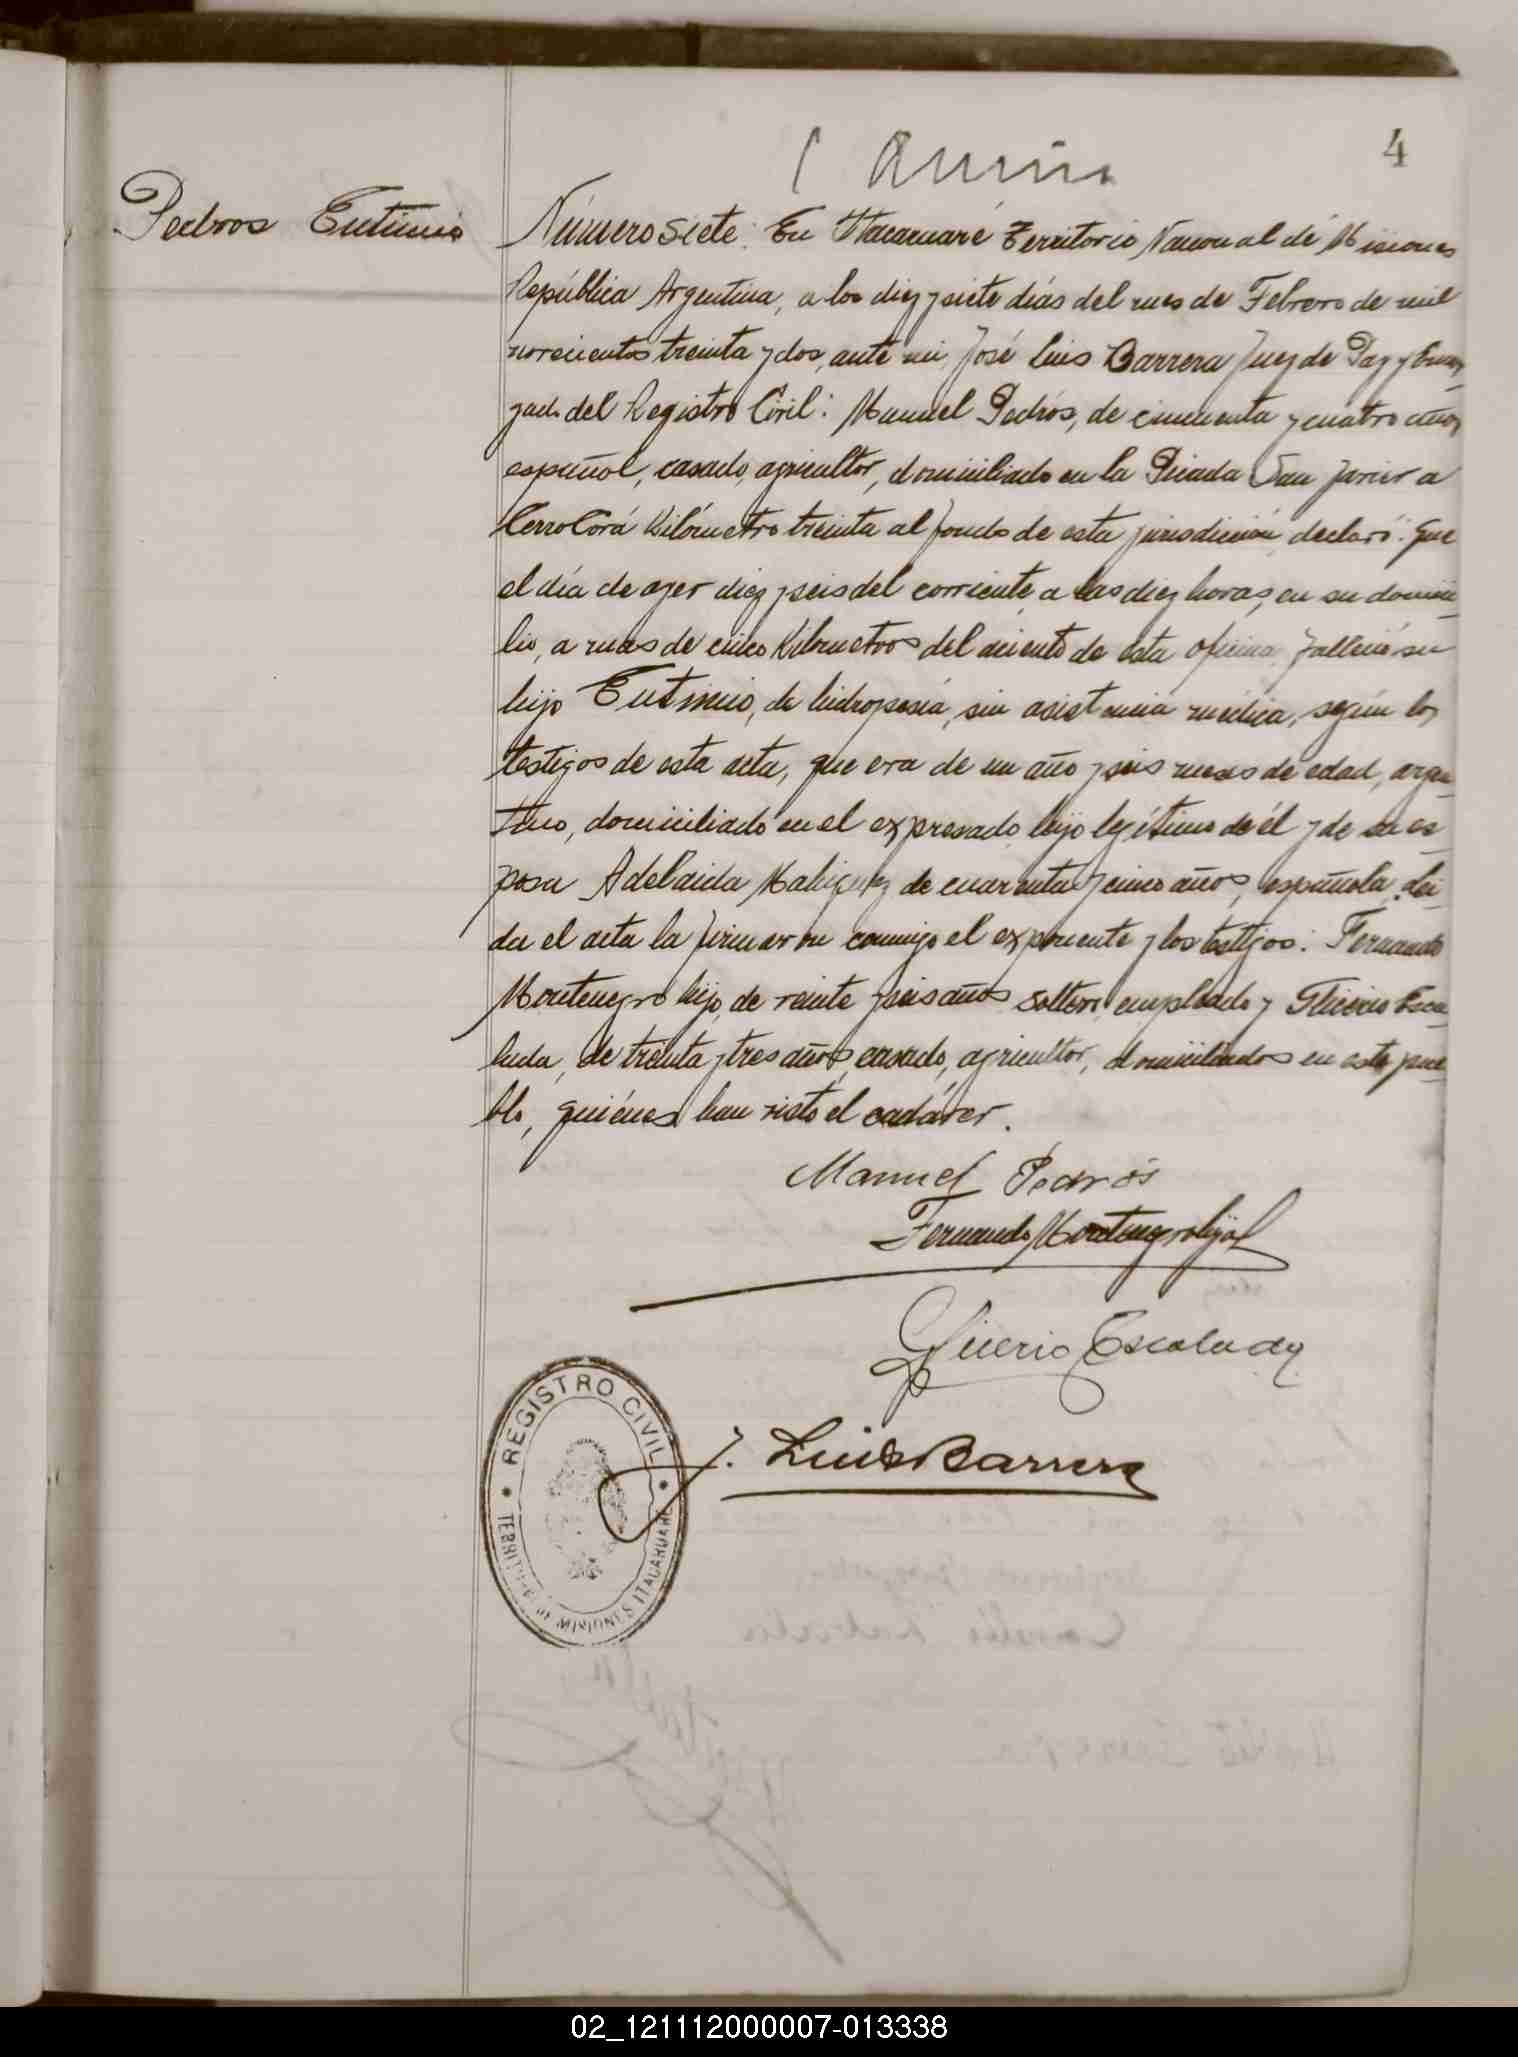 4
Pedros Eutimio
Número siete: En Itacaruaré Territorio Nacional de Misiones
República Argentina, a los diez y siete días del mes de Febrero de mil
novecientos treinta y dos, ante mi, José Luis Barrera Juez de Paz y Encar-
gado del Registro Civil: Manuel Pedrós, de cincuenta y cuatro años,
español, casado, agricultor, domiciliado en la Picada San Javier a
Cerro Corá Kilómetro treinta al fondo de esta jurisdicción, declaró: Que
el día de ayer diez y seis del corriente a las diez horas, en su domici-
lio, a mas de cinco Kilometros del asiento de esta oficina, falleció su
hijo Eutimio, de hidropesía, sin asistencia médica, según los
testigos de esta acta, que era de un año y seis meses de edad, argen-
tino, domiciliado en el expresado, hijo legítimo de él y de su es-
posa Adelaida de cuarenta y cinco años, española. Lei-
da el acta la firmaron conmigo el exponente y los testigos: Fernando
Montenegro hijo, de veinte y seis años, soltero, empleado y Glicerio Esca-
lada, de treinta y tres años, casado, agricultor, domiciliados en este pue-
blo, quiénes han visto el cadáver.
Manuel Pedrós
Fernando Montenegro hijo
Glicerio Escalada
J. Luis Barrera
REGISTRO CIVIL
TERRITORIO DE MISIONES ITACARUARE
02_121112000007-013338